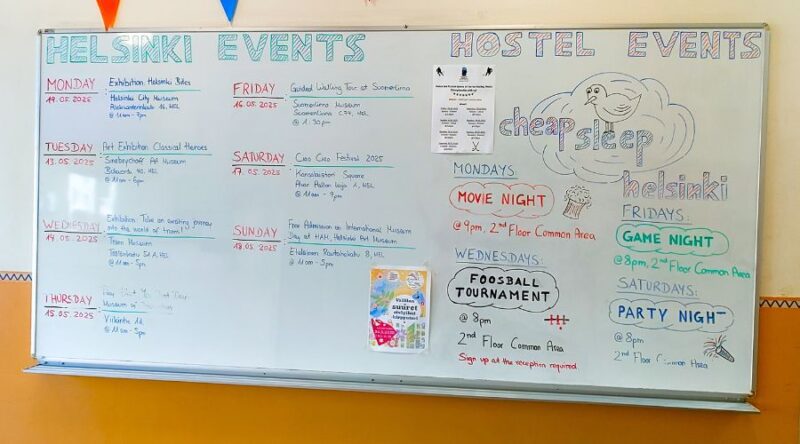 HELSINKI EVENTS
MONDAY
19.05.2025
Exhibition: Helsinki Bites
Helsinki City Museum
@ 11am - 7pm
TUESDAY
13.05.2025
Art Exhibition Classical Heroes
Sinebrychoff Art Museum
Bulevardi 40, HEL
@ 11am - 6pm
WEDNESDAY
14.05.2025
Exhibition: Take an exciting journey
into the world of trams!
Tram Museum
Töölönkatu 51 A, HEL
@ 11am - 5pm
THURSDAY
15.05.2025
Museum of
Viikintie 1
@ 11am - 5pm
FRIDAY
16.05.2025
Guided Walking Tour at Suomenlinna
Suomenlinna Museum
Suomenlinna C74, HEL
@ 1:30pm
SATURDAY
17.05.2025
Ciao Ciao Festival 2025
Kansalaistori Square
Alvar Aallon katu 1, HEL
SUNDAY
18.05.2025
Free Admission on International Museum
Day at HAM, Helsinki Art Museum
Eteläinen Rautatiekatu 8, HEL
@ 11am - 5pm
Valitse
suuret
HOSTEL EVENTS
cheap sleep
helsinki
MONDAYS
MOVIE NIGHT
@ 9pm, 2nd Floor Common Area
WEDNESDAYS:
FOOSBALL
TOURNAMENT
@ 8pm
2nd Floor Common Area
Sign up at the reception required
FRIDAYS:
GAME NIGHT
@ 8pm, 2nd Floor Common Area
SATURDAYS:
PARTY NIGHT
@ 8pm
2nd Floor Common Area